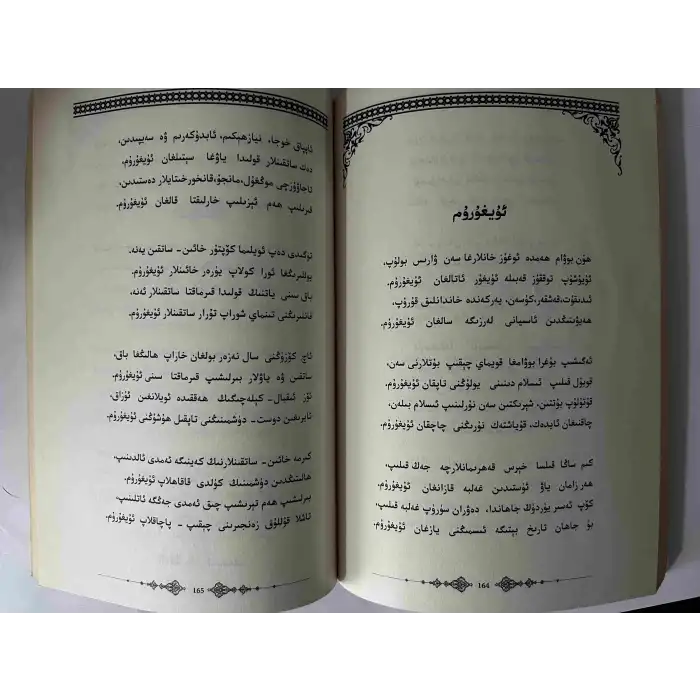 ئۇيغۇرۇم
ھۇن بوۋام ھەمدە ئوغۇز خانلارغا سەن ۋارىس بولۇپ،
ئۇيۇشۇپ توققۇز قەبىلە ئۇيغۇر ئاتالغان ئۇيغۇرۇم.
ئىدىقۇت، قەشقەر، كۈسەن، يەركەندە خاندانلىق قۇرۇپ،
ھەيۋىتىڭدىن ئاسىيانى لەرزىگە سالغان ئۇيغۇرۇم.
ئەگىشىپ بۇغرا بوۋامغا قويماي چېقىپ بۇتلارنى سەن،
قوبۇل قىلىپ ئىسلام دىنىنى يولۇڭنى تاپقان ئۇيغۇرۇم.
قۇتۇلۇپ بۇتتىن، شېرىكتىن سەن نۇرلىنىپ ئىسلام بىلەن،
چاقنىغان ئايدەك، قۇياشتەك نۇرىڭنى چاچقان ئۇيغۇرۇم.
كىم ساڭا قىلسا خىرىس قەھرىمانلارچە جەڭ قىلىپ،
ھەر زامان ياۋ ئۈستىدىن غەلبە قازانغان ئۇيغۇرۇم.
كۆپ ئەسىر يۇردۇڭ جاھاندا، دەۋران سۈرۈپ غەلبە قىلىپ،
بۇ جاھان تارىخ بېتىگە ئىسمىڭنى يازغان ئۇيغۇرۇم.
164
ئاپپاق خوجا، نىيازھېكىم، ئابدۇكەرىم ۋە سەيپىدىن،
دەك ساتقىنلار قولىدا ياۋغا سېتىلغان ئۇيغۇرۇم.
تاجاۋۇزچى موڭغۇل، مانجۇ، قانخورخىتايلار دەستىدىن،
قىرىلىپ ھەم ئېزىلىپ خارلىقتا قالغان ئۇيغۇرۇم.
تۈگىدى دەپ ئويلىما كۆپتۇر خائىن - ساتقىن يەنە،
يوللىرىڭغا ئورا كولاپ يۈرەر خائىنلار ئۇيغۇرۇم.
باق سىنى ياتنىڭ قولىدا قىرماقتا ساتقىنلار ئەنە،
قانلىرىڭنى تىنماي شوراپ تۇرار ساتقىنلار ئۇيغۇرۇم.
ئاچ كۆزۈڭنى سال نەزەر بولغان خاراپ ھالىڭغا باق،
ساتقىن ۋە ياۋلار بىرلىشىپ قىرماقتا سىنى ئۇيغۇرۇم.
ئۆز ئىقبال - كېلەچىگىڭ ھەققىدە ئويلانغىن ئۇزاق،
ئايرىغىن دوست - دۈشمىنىڭنى تاپقىل ھوشۇڭنى ئۇيغۇرۇم.
كىرمە خائىن - ساتقىنلارنىڭ كەينىگە ئەمدى ئالدىنىپ،
ھالىڭدىن دۈشمىنىڭ كۈلدى قاقاھلاپ ئۇيغۇرۇم.
بىرلىشىپ ھەم تىرىشىپ چىق ئەمدى جەڭگە ئاتلىنىپ،
تاشلا قۇللۇق زەنجىرىنى چېقىپ - پاچاقلاپ ئۇيغۇرۇم.
165